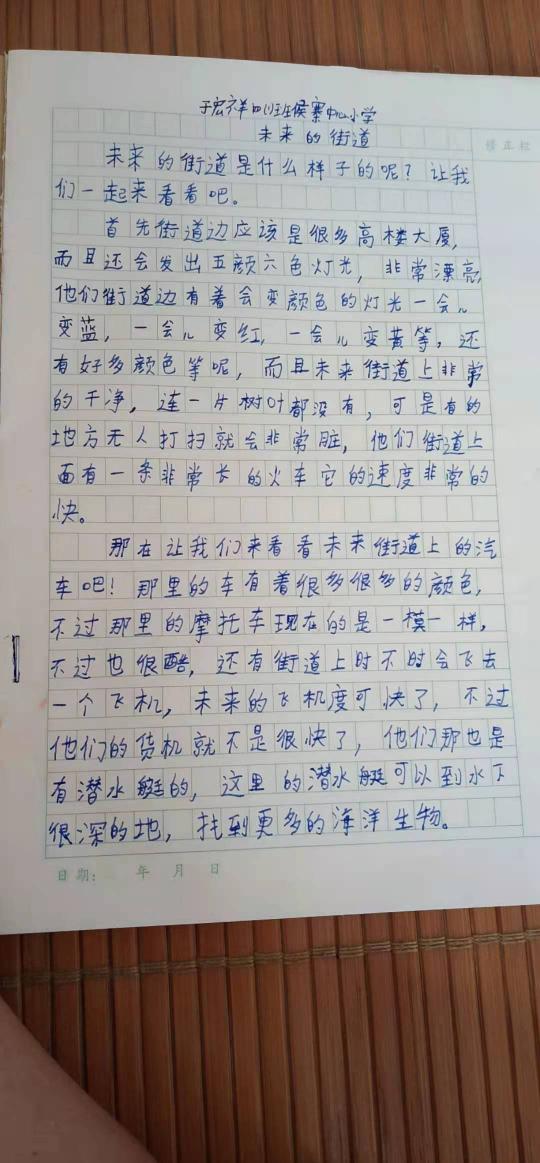 于宏祥四(1)班侯寨中心小学
未来的街道
修正栏
未来的街道是什么样子的呢？让我
们一起来看看吧。
首先街道边应该是很多高楼大厦，
而且还会发出五颜六色灯光，非常漂亮，
他们街道边有着会变颜色的灯光一会儿
变蓝，一会儿变红，一会儿变黄等，还
有好多颜色等呢，而且未来街道上非常
的干净，连一片树叶都没有，可是有的
地方无人打扫就会非常脏，他们街道上
面有一条非常长的火车它的速度非常的
快。
那在让我们来看看未来街道上的汽
车吧！那里的车有着很多很多的颜色，
不过那里的摩托车现在的是一模一样，
不过也很酷，还有街道上时不时会飞去
一个飞机，未来的飞机度可快了，不过
他们的货机就不是很快了，他们那也是
有潜水艇的，这里的潜水艇可以到水下
很深的地，找到更多的海洋生物。
日期： 年 月 日